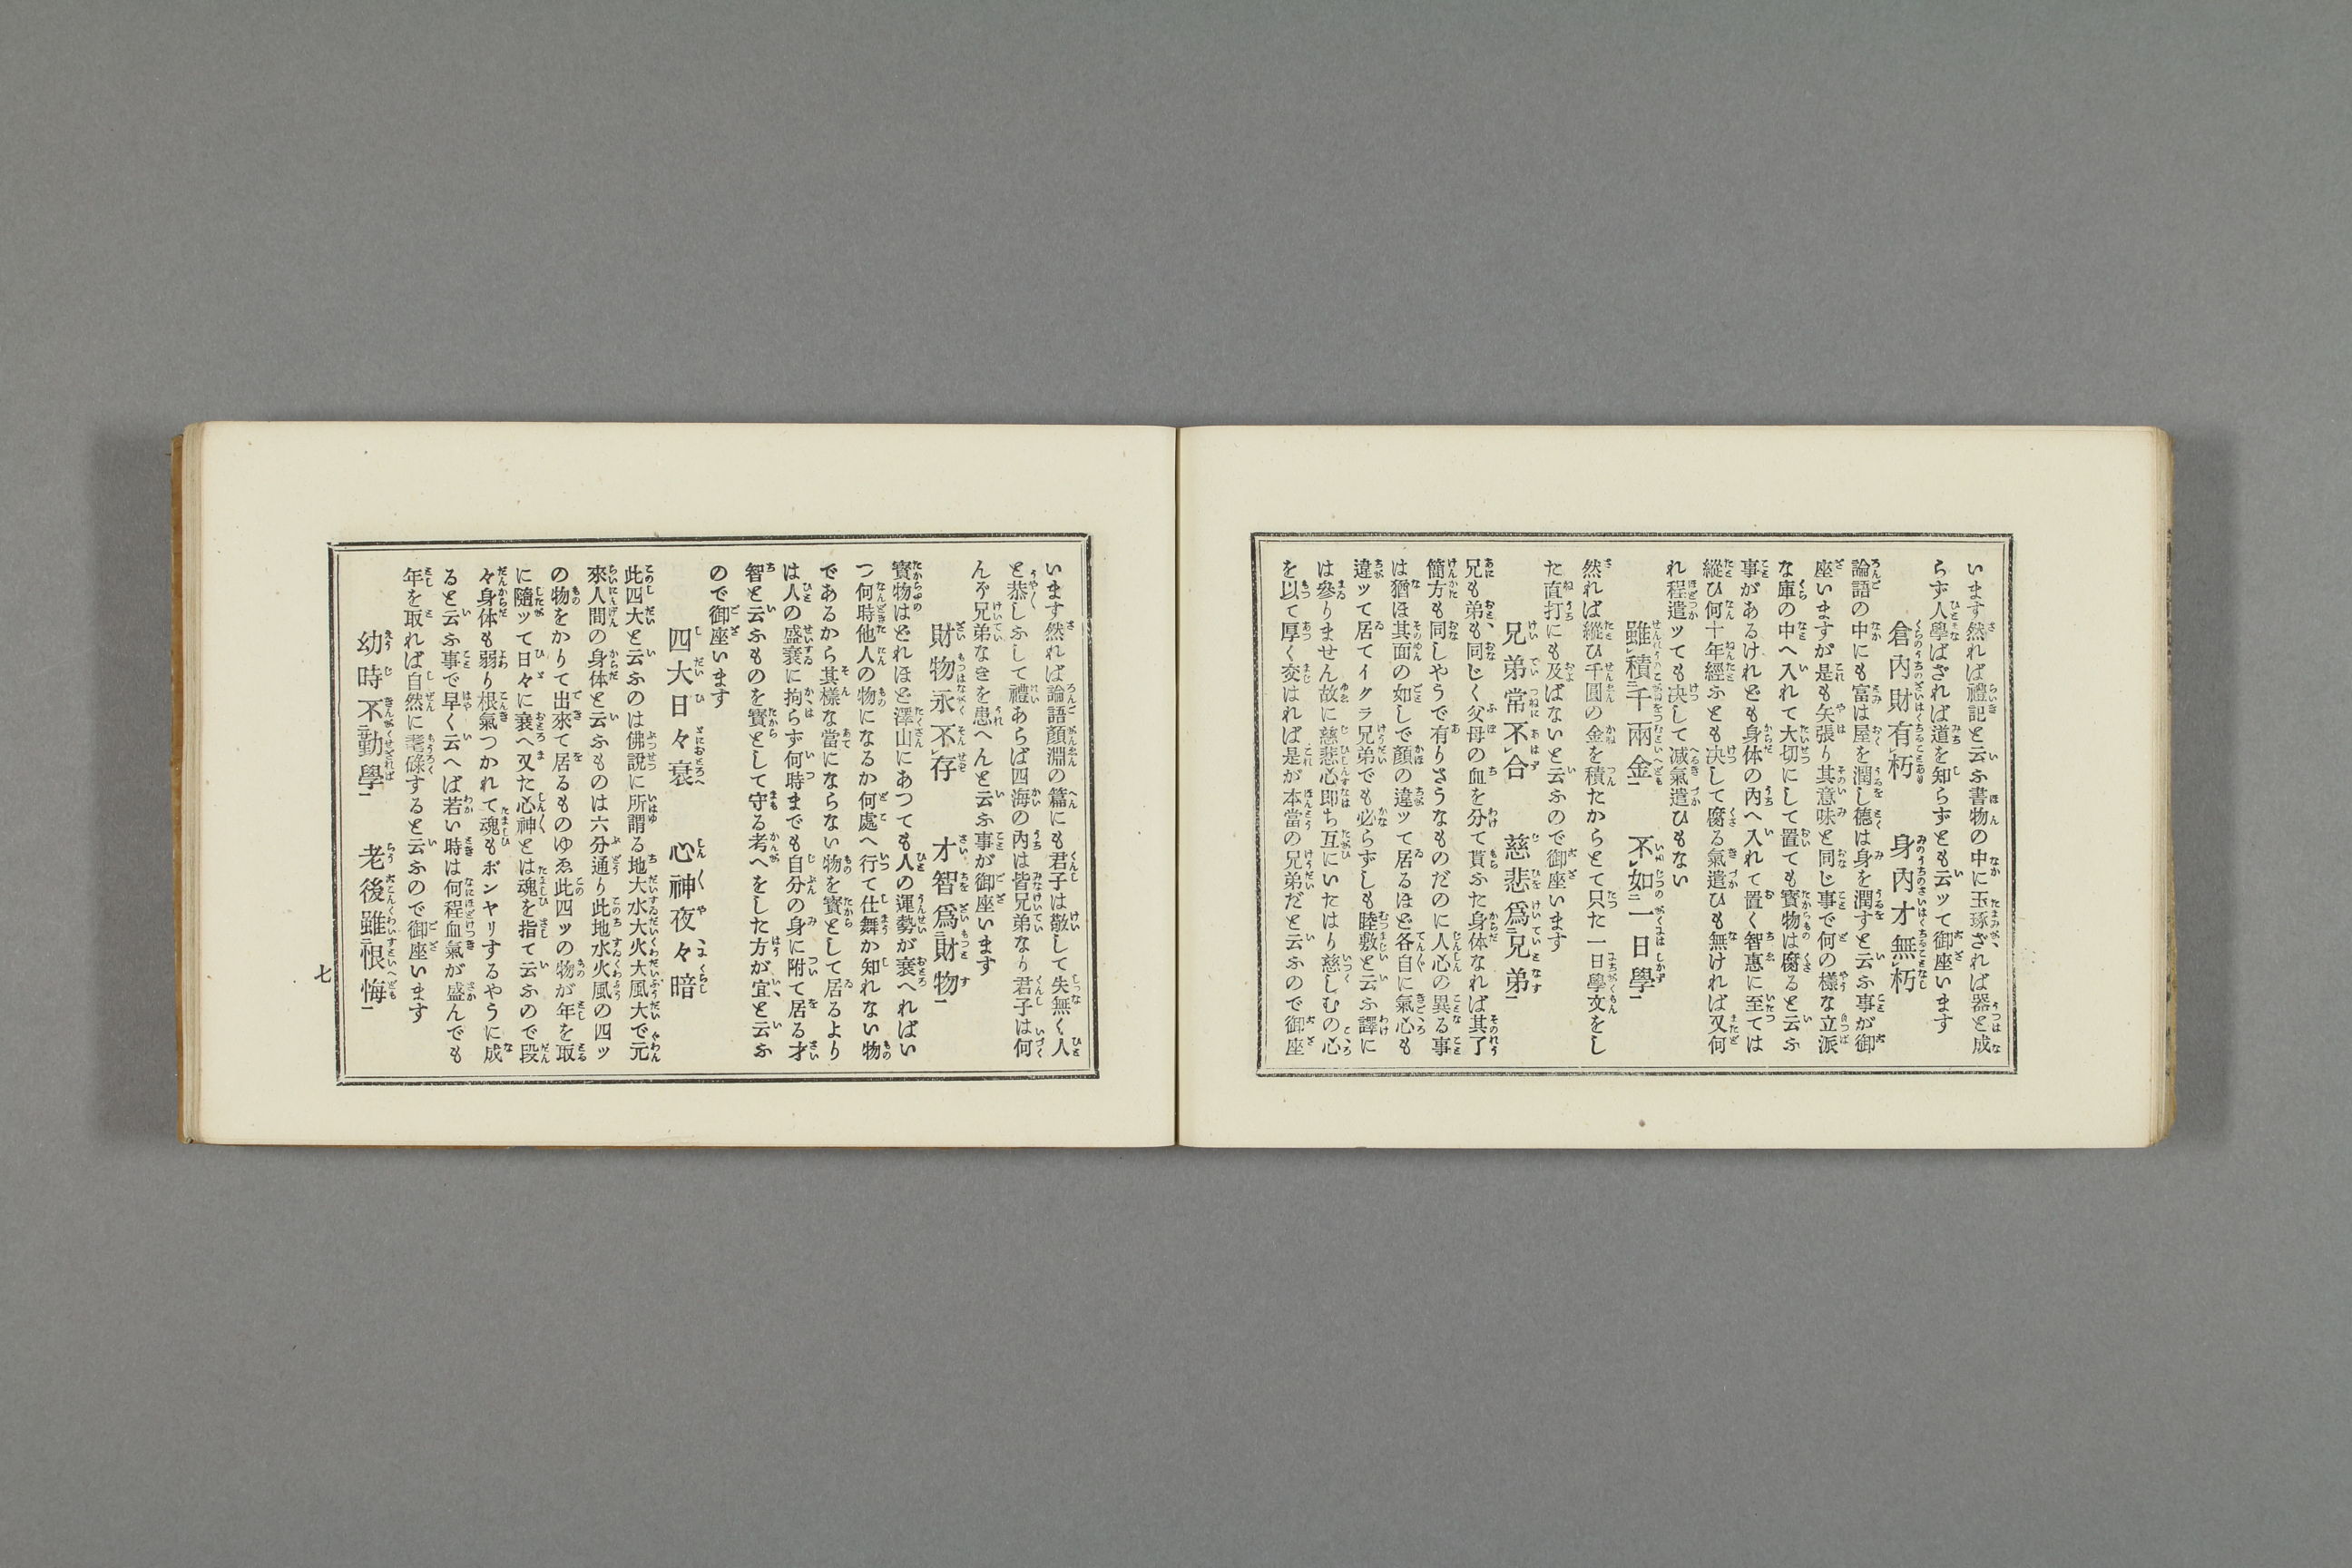 います然れば禮記と云ふ書物の中に玉琢ざれば器と成
らず人學ばざれば道を知らずとも云ッて御座います
倉內財有レ朽　身內才無レ朽
論語の中にも富は屋を潤し德は身を潤すと云ふ事が御
座いますが是も矢張り其意味と同じ事で何の樣な立派
な庫の中へ入れて大切にして置ても寳物は腐ると云ふ
事があるけれども身体の內へ入れて置く智惠に至ては
縱ひ何十年經ふとも决して腐る氣遣ひも無ければ又何
れ程遣ッても决して减氣遣ひもない
雖レ積二千兩金一　不レ如二一日學一
然れば縱ひ千圓の金を積たからとて只た一日學文をし
た直打にも及ばないと云ふので御座います
兄弟常不レ合　慈悲爲二兄弟一
兄も弟も同じく父母の血を分て貰ふた身体なれば其了
簡方も同しやうで有りさうなものだのに人心の異る事
は猶ほ其面の如しで顏の違ッて居るほど各自に氣心も
違ッて居てイクラ兄弟でも必らずしも睦敷と云ふ譯に
は參りません故に慈悲心即ち互にいたはり慈しむの心
を以て厚く交はれば是が本當の兄弟だと云ふので御座
います然れば論語顏淵の篇にも君子は敬して失無く人
と恭しふして禮あらば四海の內は皆兄弟なり君子は何
んぞ兄弟なきを患へんと云ふ事が御座います
財物永不レ存　才智爲二財物一
寳物はどれほど澤山にあつても人の運勢が衰へればい
つ何時他人の物になるか何處へ行て仕舞か知れない物
であるから其樣な當にならない物を寳として居るより
は人の盛衰に拘らず何時までも自分の身に附て居る才
智と云ふものを寳として守る考へをした方が宜と云ふ
ので御座います
四大日々衰　心神夜々暗
此四大と云ふのは佛說に所謂る地大水大火大風大で元
來人間の身体と云ふものは六分通り此地水火風の四ッ
の物をかりて出來て居るものゆゑ此四ッの物が年を取
に隨ッて日々に衰へ又た心神とは魂を指て云ふので段
々身体も弱り根氣つかれて魂もボンヤリするやうに成
ると云ふ事で早く云へば若い時は何程血氣が盛んでも
年を取れば自然に耄碌すると云ふので御座います
幼時不二勤學一　老後雖二恨悔一
七